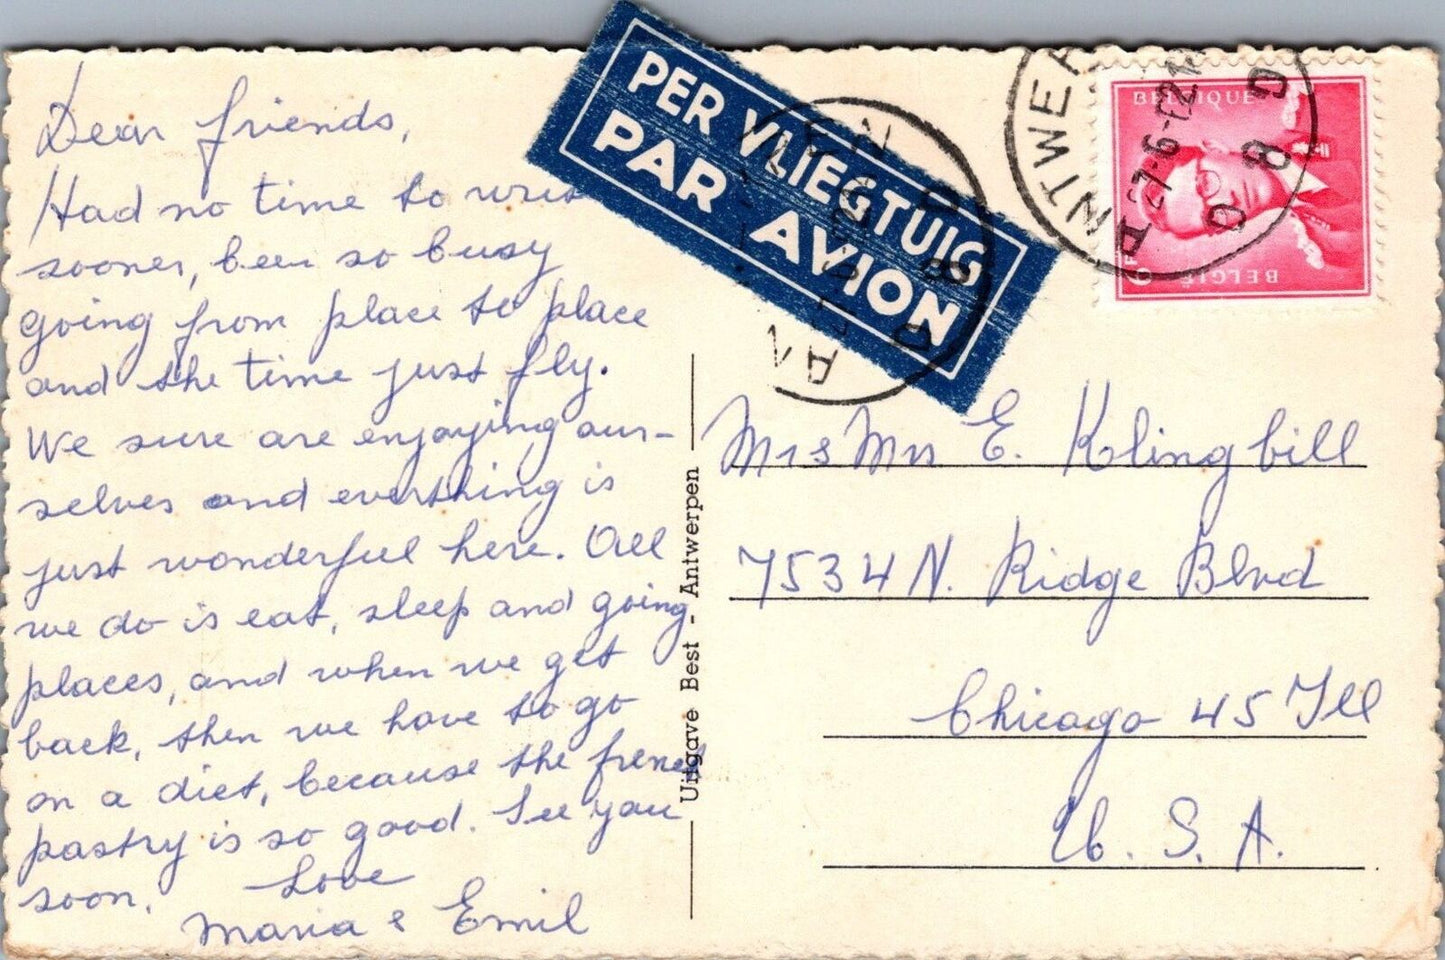 Dear friends,
Had no time to write
sooner, been so busy
going from place to place
and the time just fly.
We sure are enjoying our-
selves and everthing is
just wonderful here. All
we do is eat, sleep and going
places, and when we get
back, then we have to go
on a diet, because the french
pastry is so good. See you
soon.
Love
Maria & Emil
PER VLIEGTUIG
PAR AVION
BELGIQUE
BELGIË
ANTWER
D 8 D
Uitgave Best - Antwerpen
Mrs Mrs E. Klingbill
7534 N. Ridge Blvd
Chicago 45 Ill
U. S. A.